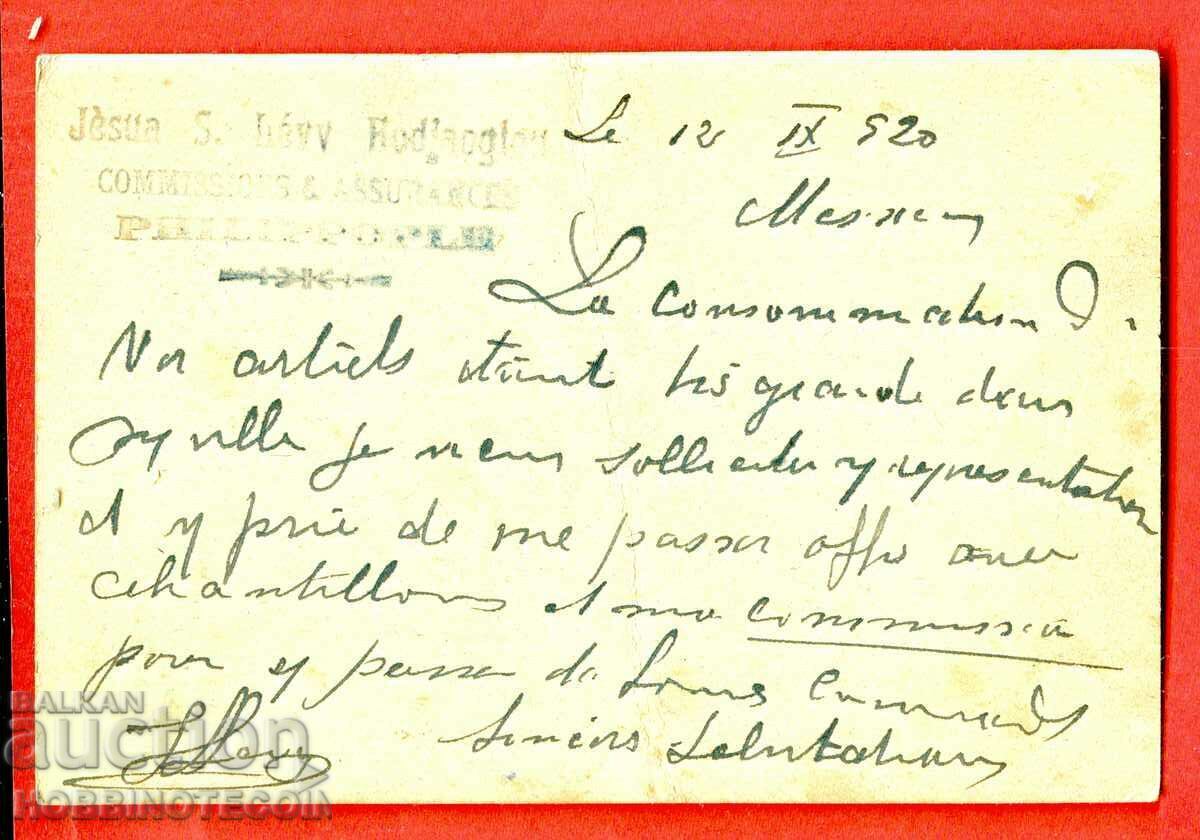 Jèsua S. Lévy Hodjaoglou
COMMISSIONS & ASSURANCES
PHILIPPOPLE
Le 12 IX 920
Messieurs
La consommation D.
Vos articles étant très grande dans
ville je viens solliciter représentation
et prie de me passer offre avec
échantillons et ma commission
pour passer de bonnes commandes
Sincères Salutations
JSLevy
BALKAN
auction
HOBBINOTECOIN